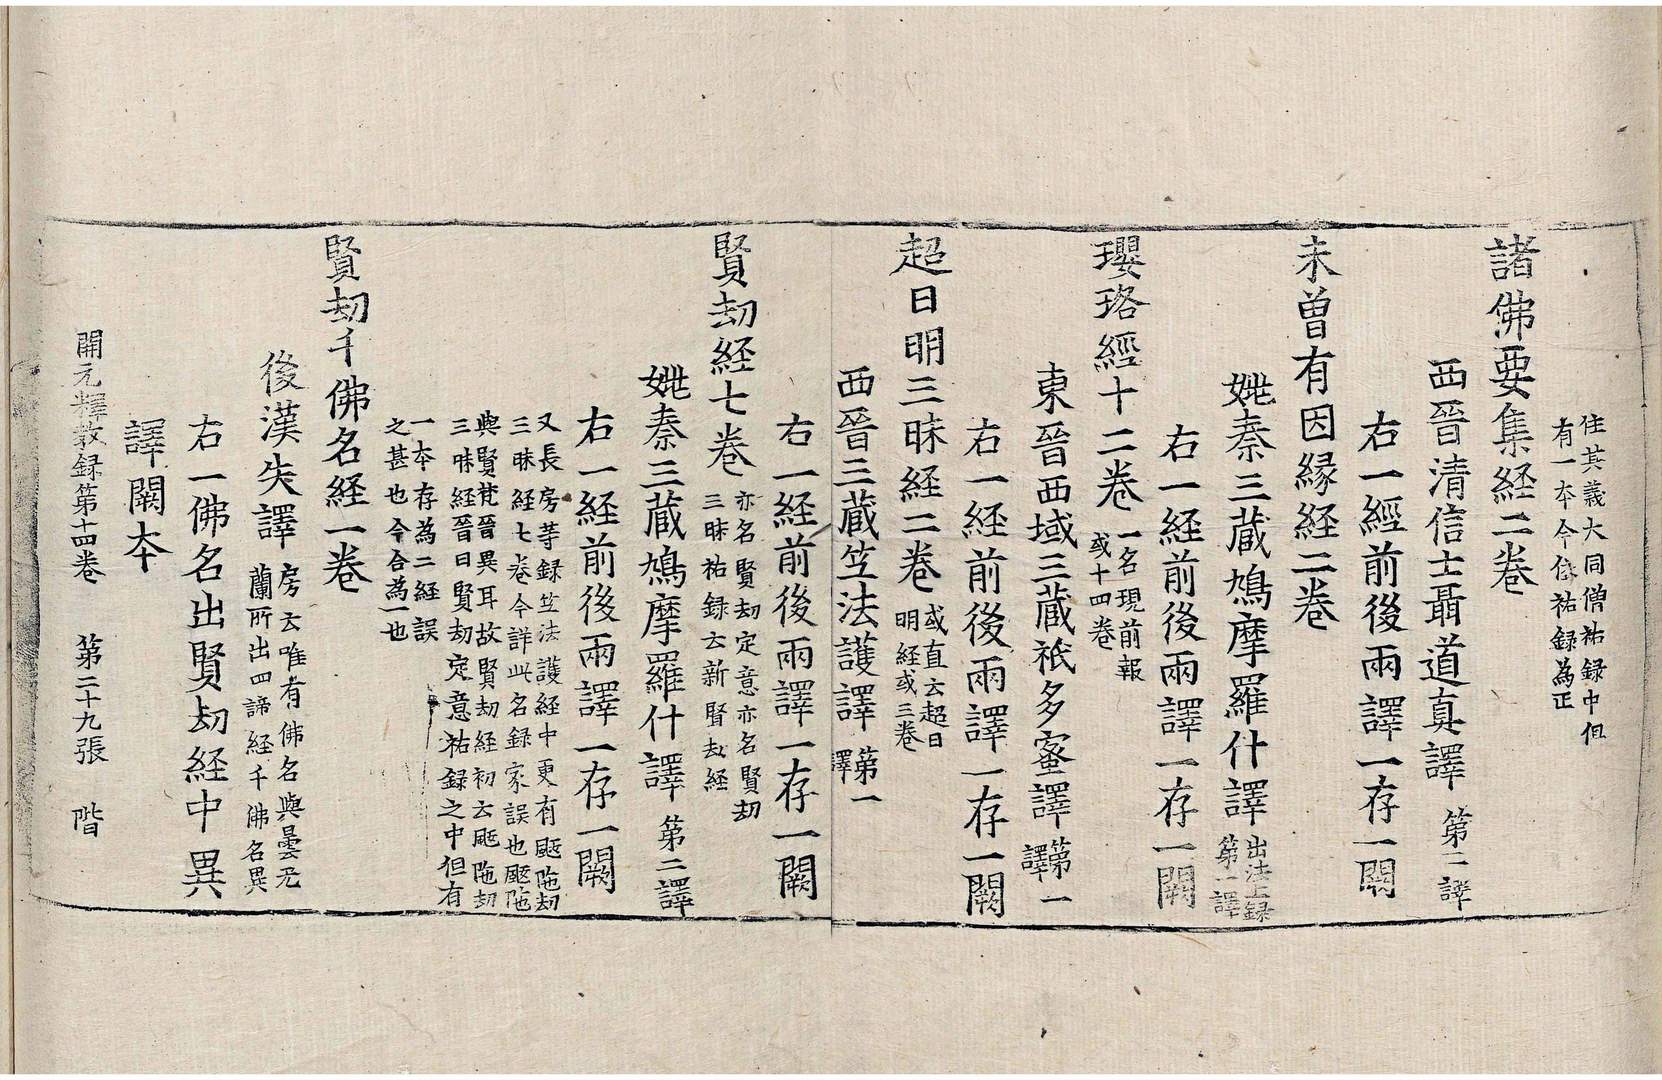 住其義大同僧祐録中但
有一本今依祐録為正
諸佛要集経二卷
西晉清信士聶道真譯 第二譯
右一經前後兩譯一存一闕
未曾有因緣経二卷
姚秦三蔵鳩摩羅什譯 出法上録
第一譯
右一経前後兩譯一存一闕
瓔珞經十二卷 一名現前報
或十四卷
東晉西域三蔵祇多蜜譯 第一
譯
右一経前後兩譯一存一闕
超日明三昧経二卷 或直云超日
明経或三卷
西晉三蔵竺法護譯 第一
譯
右一経前後兩譯一存一闕
賢劫経七卷 亦名賢劫定意亦名賢劫
三昧祐録云新賢劫経
姚秦三蔵鳩摩羅什譯 第二譯
右一経前後兩譯一存一闕
又長房等録竺法護経中更有颰陁劫
三昧経七卷今詳此名録家誤也颰陁
與賢梵晉異耳故賢劫経初云颰陁劫
三昧経晉曰賢劫定意祐録之中但有
一本存為二経誤
之甚也今合為一也
賢劫千佛名経一卷
後漢失譯 房云唯有佛名與曇无
蘭所出四諦経千佛名異
右一佛名出賢劫経中異
譯闕本
開元釋教録第十四卷 第二十九張 階